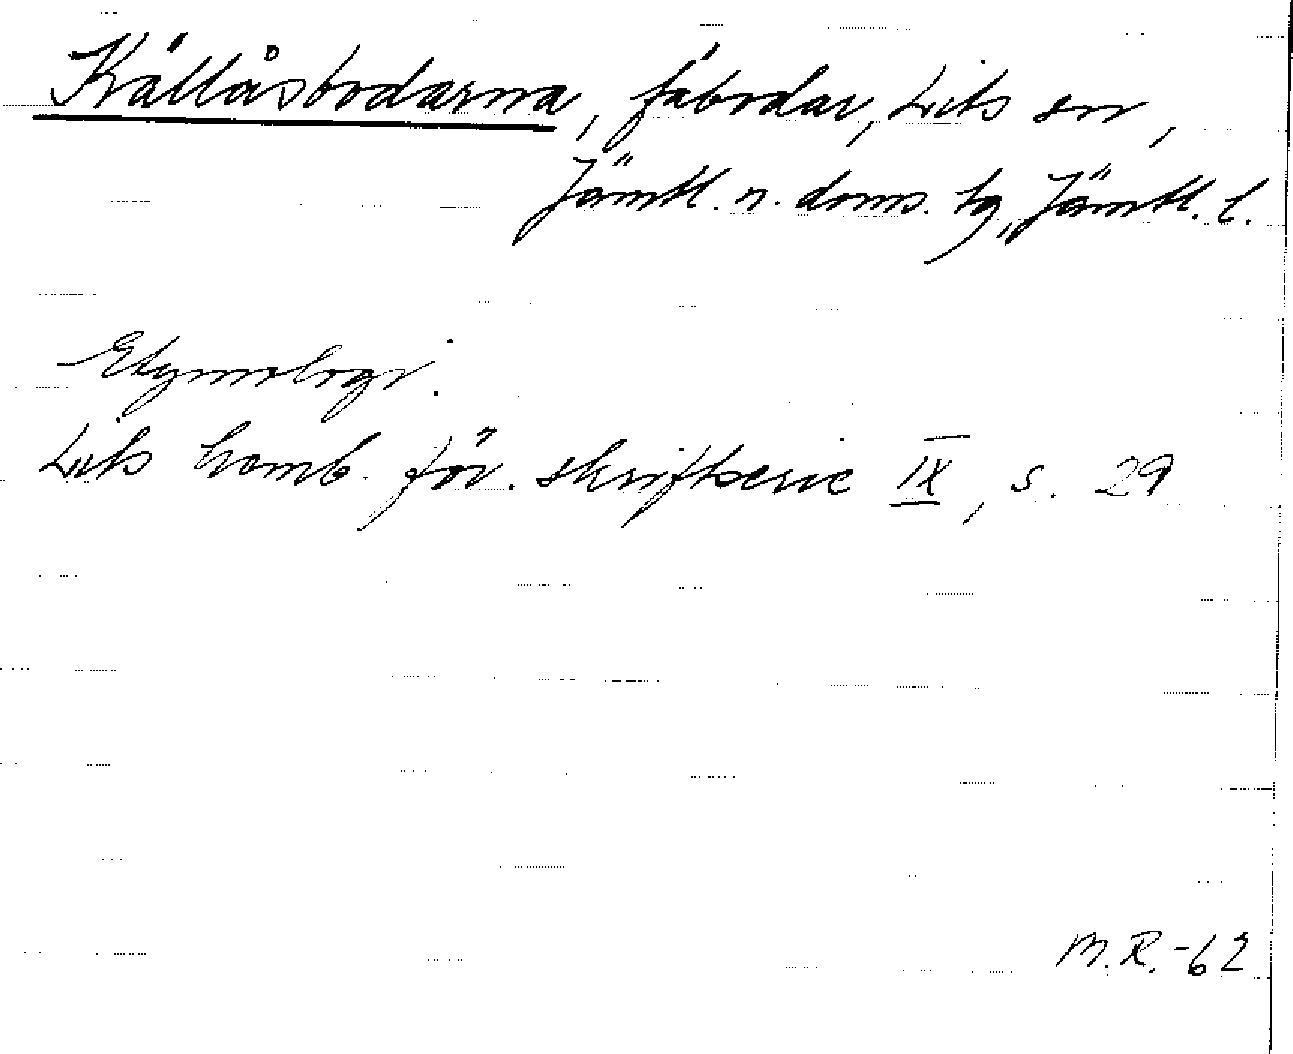 Källåsbodarna, fäbodar, Lits sn,
Jämtl. n. doms. tg, Jämtl. l.
Etymologi:
Lits hemb. för. skriftserie IX, s. 29
M.R.-62